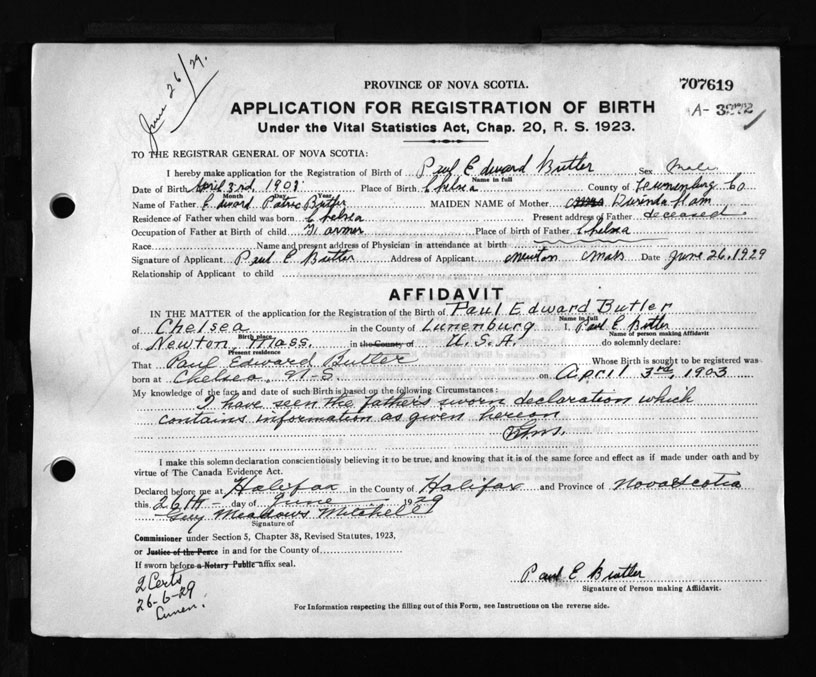 June 26/29.
PROVINCE OF NOVA SCOTIA.
707619
APPLICATION FOR REGISTRATION OF BIRTH
A-
Under the Vital Statistics Act, Chap. 20, R. S. 1923.
TO THE REGISTRAR GENERAL OF NOVA SCOTIA:
I hereby make application for the Registration of Birth of Paul Edward Butler Sex Male
Name in full
Date of Birth April 3rd, 1903 Place of Birth Chelsea County of Lunenburg Co
Month Day Year
Name of Father Edward Patric Butler MAIDEN NAME of Mother Ham
Residence of Father when child was born Chelsea Present address of Father deceased
Occupation of Father at Birth of child Farmer Place of birth of Father Chelsea
Race Name and present address of Physician in attendance at birth
Signature of Applicant Paul E Butler Address of Applicant Newton Mass Date June 26, 1929
Relationship of Applicant to child
AFFIDAVIT
IN THE MATTER of the application for the Registration of the Birth of Paul Edward Butler
Name in full
of Chelsea in the County of Lunenburg I, Paul E Butler
Birth place Name of person making Affidavit
of Newton, Mass. in the County of U.S.A. do solemnly declare:
Present residence
That Paul Edward Butler Whose Birth is sought to be registered was
born at Chelsea, N-S. on April 3rd, 1903
My knowledge of the fact and date of such Birth is based on the following Circumstances:
I have seen the fathers sworn declaration which
contains information as given hereon
I make this solemn declaration conscientiously believing it to be true, and knowing that it is of the same force and effect as if made under oath and by
virtue of The Canada Evidence Act.
Declared before me at Halifax in the County of Halifax and Province of Nova Scotia
this 26th day of June 1929
Guy Meadows Mitchell
Signature of
Commissioner under Section 5, Chapter 38, Revised Statutes, 1923,
or Justice of the Peace in and for the County of
If sworn before a Notary Public affix seal.
2 Certs
26-6-29
Lunen.
Paul E Butler
Signature of Person making Affidavit.
For Information respecting the filling out of this Form, see Instructions on the reverse side.